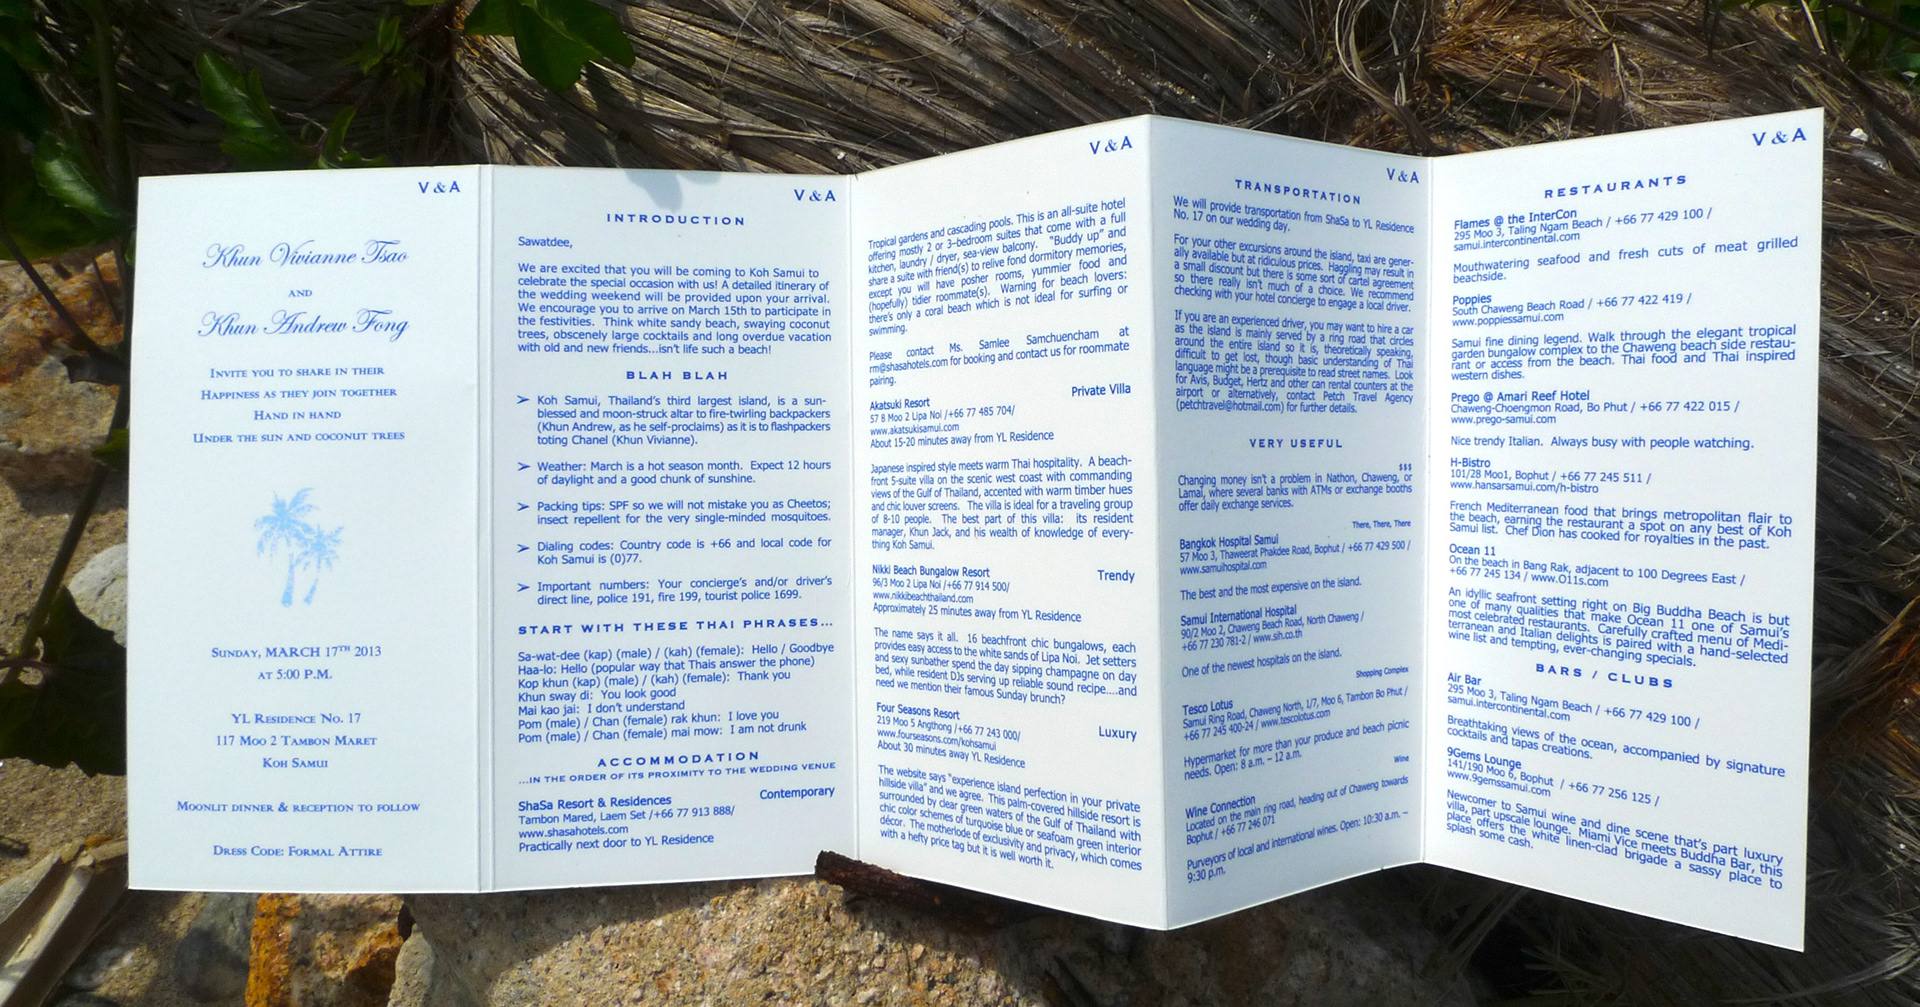 V & A
Khun Vivianne Tsao
AND
Khun Andrew Fong
INVITE YOU TO SHARE IN THEIR
HAPPINESS AS THEY JOIN TOGETHER
HAND IN HAND
UNDER THE SUN AND COCONUT TREES
SUNDAY, MARCH 17TH 2013
AT 5:00 P.M.
YL RESIDENCE NO. 17
117 MOO 2 TAMBON MARET
KOH SAMUI
MOONLIT DINNER & RECEPTION TO FOLLOW
DRESS CODE: FORMAL ATTIRE
V & A
INTRODUCTION
Sawatdee,
We are excited that you will be coming to Koh Samui to
celebrate the special occasion with us! A detailed itinerary of
the wedding weekend will be provided upon your arrival.
We encourage you to arrive on March 15th to participate in
the festivities. Think white sandy beach, swaying coconut
trees, obscenely large cocktails and long overdue vacation
with old and new friends...isn't life such a beach!
BLAH BLAH
➢ Koh Samui, Thailand's third largest island, is a sun-
blessed and moon-struck altar to fire-twirling backpackers
(Khun Andrew, as he self-proclaims) as it is to flashpackers
toting Chanel (Khun Vivianne).
➢ Weather: March is a hot season month. Expect 12 hours
of daylight and a good chunk of sunshine.
➢ Packing tips: SPF so we will not mistake you as Cheetos;
insect repellent for the very single-minded mosquitoes.
➢ Dialing codes: Country code is +66 and local code for
Koh Samui is (0)77.
➢ Important numbers: Your concierge's and/or driver's
direct line, police 191, fire 199, tourist police 1699.
START WITH THESE THAI PHRASES...
Sa-wat-dee (kap) (male) / (kah) (female): Hello / Goodbye
Haa-lo: Hello (popular way that Thais answer the phone)
Kop khun (kap) (male) / (kah) (female): Thank you
Khun sway di: You look good
Mai kao jai: I don't understand
Pom (male) / Chan (female) rak khun: I love you
Pom (male) / Chan (female) mai mow: I am not drunk
ACCOMMODATION
...IN THE ORDER OF ITS PROXIMITY TO THE WEDDING VENUE
Contemporary
ShaSa Resort & Residences
Tambon Mared, Laem Set /+66 77 913 888/
www.shasahotels.com
Practically next door to YL Residence
V & A
Tropical gardens and cascading pools. This is an all-suite hotel
offering mostly 2 or 3-bedroom suites that come with a full
kitchen, laundry / dryer, sea-view balcony. "Buddy up" and
share a suite with friend(s) to relive fond dormitory memories,
except you will have posher rooms, yummier food and
(hopefully) tidier roommate(s). Warning for beach lovers:
there's only a coral beach which is not ideal for surfing or
swimming.
Please contact Ms. Samlee Samchuencham at
rm@shasahotels.com for booking and contact us for roommate
pairing.
Private Villa
Akatsuki Resort
57 8 Moo 2 Lipa Noi /+66 77 485 704/
www.akatsukisamui.com
About 15-20 minutes away from YL Residence
Japanese inspired style meets warm Thai hospitality. A beach-
front 5-suite villa on the scenic west coast with commanding
views of the Gulf of Thailand, accented with warm timber hues
and chic louver screens. The villa is ideal for a traveling group
of 8-10 people. The best part of this villa: its resident
manager, Khun Jack, and his wealth of knowledge of every-
thing Koh Samui.
Trendy
Nikki Beach Bungalow Resort
96/3 Moo 2 Lipa Noi /+66 77 914 500/
www.nikkibeachthailand.com
Approximately 25 minutes away from YL Residence
The name says it all. 16 beachfront chic bungalows, each
provides easy access to the white sands of Lipa Noi. Jet setters
and sexy sunbather spend the day sipping champagne on day
bed, while resident DJs serving up reliable sound recipe....and
need we mention their famous Sunday brunch?
Luxury
Four Seasons Resort
219 Moo 5 Angthong /+66 77 243 000/
www.fourseasons.com/kohsamui
About 30 minutes away YL Residence
The website says "experience island perfection in your private
hillside villa" and we agree. This palm-covered hillside resort is
surrounded by clear green waters of the Gulf of Thailand with
chic color schemes of turquoise blue or seafoam green interior
décor. The motherlode of exclusivity and privacy, which comes
with a hefty price tag but it is well worth it.
V & A
TRANSPORTATION
We will provide transportation from ShaSa to YL Residence
No. 17 on our wedding day.
For your other excursions around the island, taxi are gener-
ally available but at ridiculous prices. Haggling may result in
a small discount but there is some sort of cartel agreement
so there really isn't much of a choice. We recommend
checking with your hotel concierge to engage a local driver.
If you are an experienced driver, you may want to hire a car
as the island is mainly served by a ring road that circles
around the entire island so it is, theoretically speaking,
difficult to get lost, though basic understanding of Thai
language might be a prerequisite to read street names. Look
for Avis, Budget, Hertz and other can rental counters at the
airport or alternatively, contact Petch Travel Agency
(petchtravel@hotmail.com) for further details.
VERY USEFUL
$$$
Changing money isn't a problem in Nathon, Chaweng, or
Lamai, where several banks with ATMs or exchange booths
offer daily exchange services.
There, There, There
Bangkok Hospital Samui
57 Moo 3, Thaweerat Phakdee Road, Bophut / +66 77 429 500 /
www.samuihospital.com
The best and the most expensive on the island.
Samui International Hospital
90/2 Moo 2, Chaweng Beach Road, North Chaweng /
+66 77 230 781-2 / www.sih.co.th
One of the newest hospitals on the island.
Shopping Complex
Tesco Lotus
Samui Ring Road, Chaweng North, 1/7, Moo 6, Tambon Bo Phut /
+66 77 245 400-24 / www.tescolotus.com
Hypermarket for more than your produce and beach picnic
needs. Open: 8 a.m. – 12 a.m.
Wine
Wine Connection
Located on the main ring road, heading out of Chaweng towards
Bophut / +66 77 246 071
Purveyors of local and international wines. Open: 10:30 a.m. –
9:30 p.m.
V & A
RESTAURANTS
Flames @ the InterCon
295 Moo 3, Taling Ngam Beach / +66 77 429 100 /
samui.intercontinental.com
Mouthwatering seafood and fresh cuts of meat grilled
beachside.
Poppies
South Chaweng Beach Road / +66 77 422 419 /
www.poppiessamui.com
Samui fine dining legend. Walk through the elegant tropical
garden bungalow complex to the Chaweng beach side restau-
rant or access from the beach. Thai food and Thai inspired
western dishes.
Prego @ Amari Reef Hotel
Chaweng-Choengmon Road, Bo Phut / +66 77 422 015 /
www.prego-samui.com
Nice trendy Italian. Always busy with people watching.
H-Bistro
101/28 Moo1, Bophut / +66 77 245 511 /
www.hansarsamui.com/h-bistro
French Mediterranean food that brings metropolitan flair to
the beach, earning the restaurant a spot on any best of Koh
Samui list. Chef Dion has cooked for royalties in the past.
Ocean 11
On the beach in Bang Rak, adjacent to 100 Degrees East /
+66 77 245 134 / www.O11s.com
An idyllic seafront setting right on Big Buddha Beach is but
one of many qualities that make Ocean 11 one of Samui's
most celebrated restaurants. Carefully crafted menu of Medi-
terranean and Italian delights is paired with a hand-selected
wine list and tempting, ever-changing specials.
BARS / CLUBS
Air Bar
295 Moo 3, Taling Ngam Beach / +66 77 429 100 /
samui.intercontinental.com
Breathtaking views of the ocean, accompanied by signature
cocktails and tapas creations.
9Gems Lounge
141/190 Moo 6, Bophut / +66 77 256 125 /
www.9gemssamui.com
Newcomer to Samui wine and dine scene that's part luxury
villa, part upscale lounge. Miami Vice meets Buddha Bar, this
place offers the white linen-clad brigade a sassy place to
splash some cash.